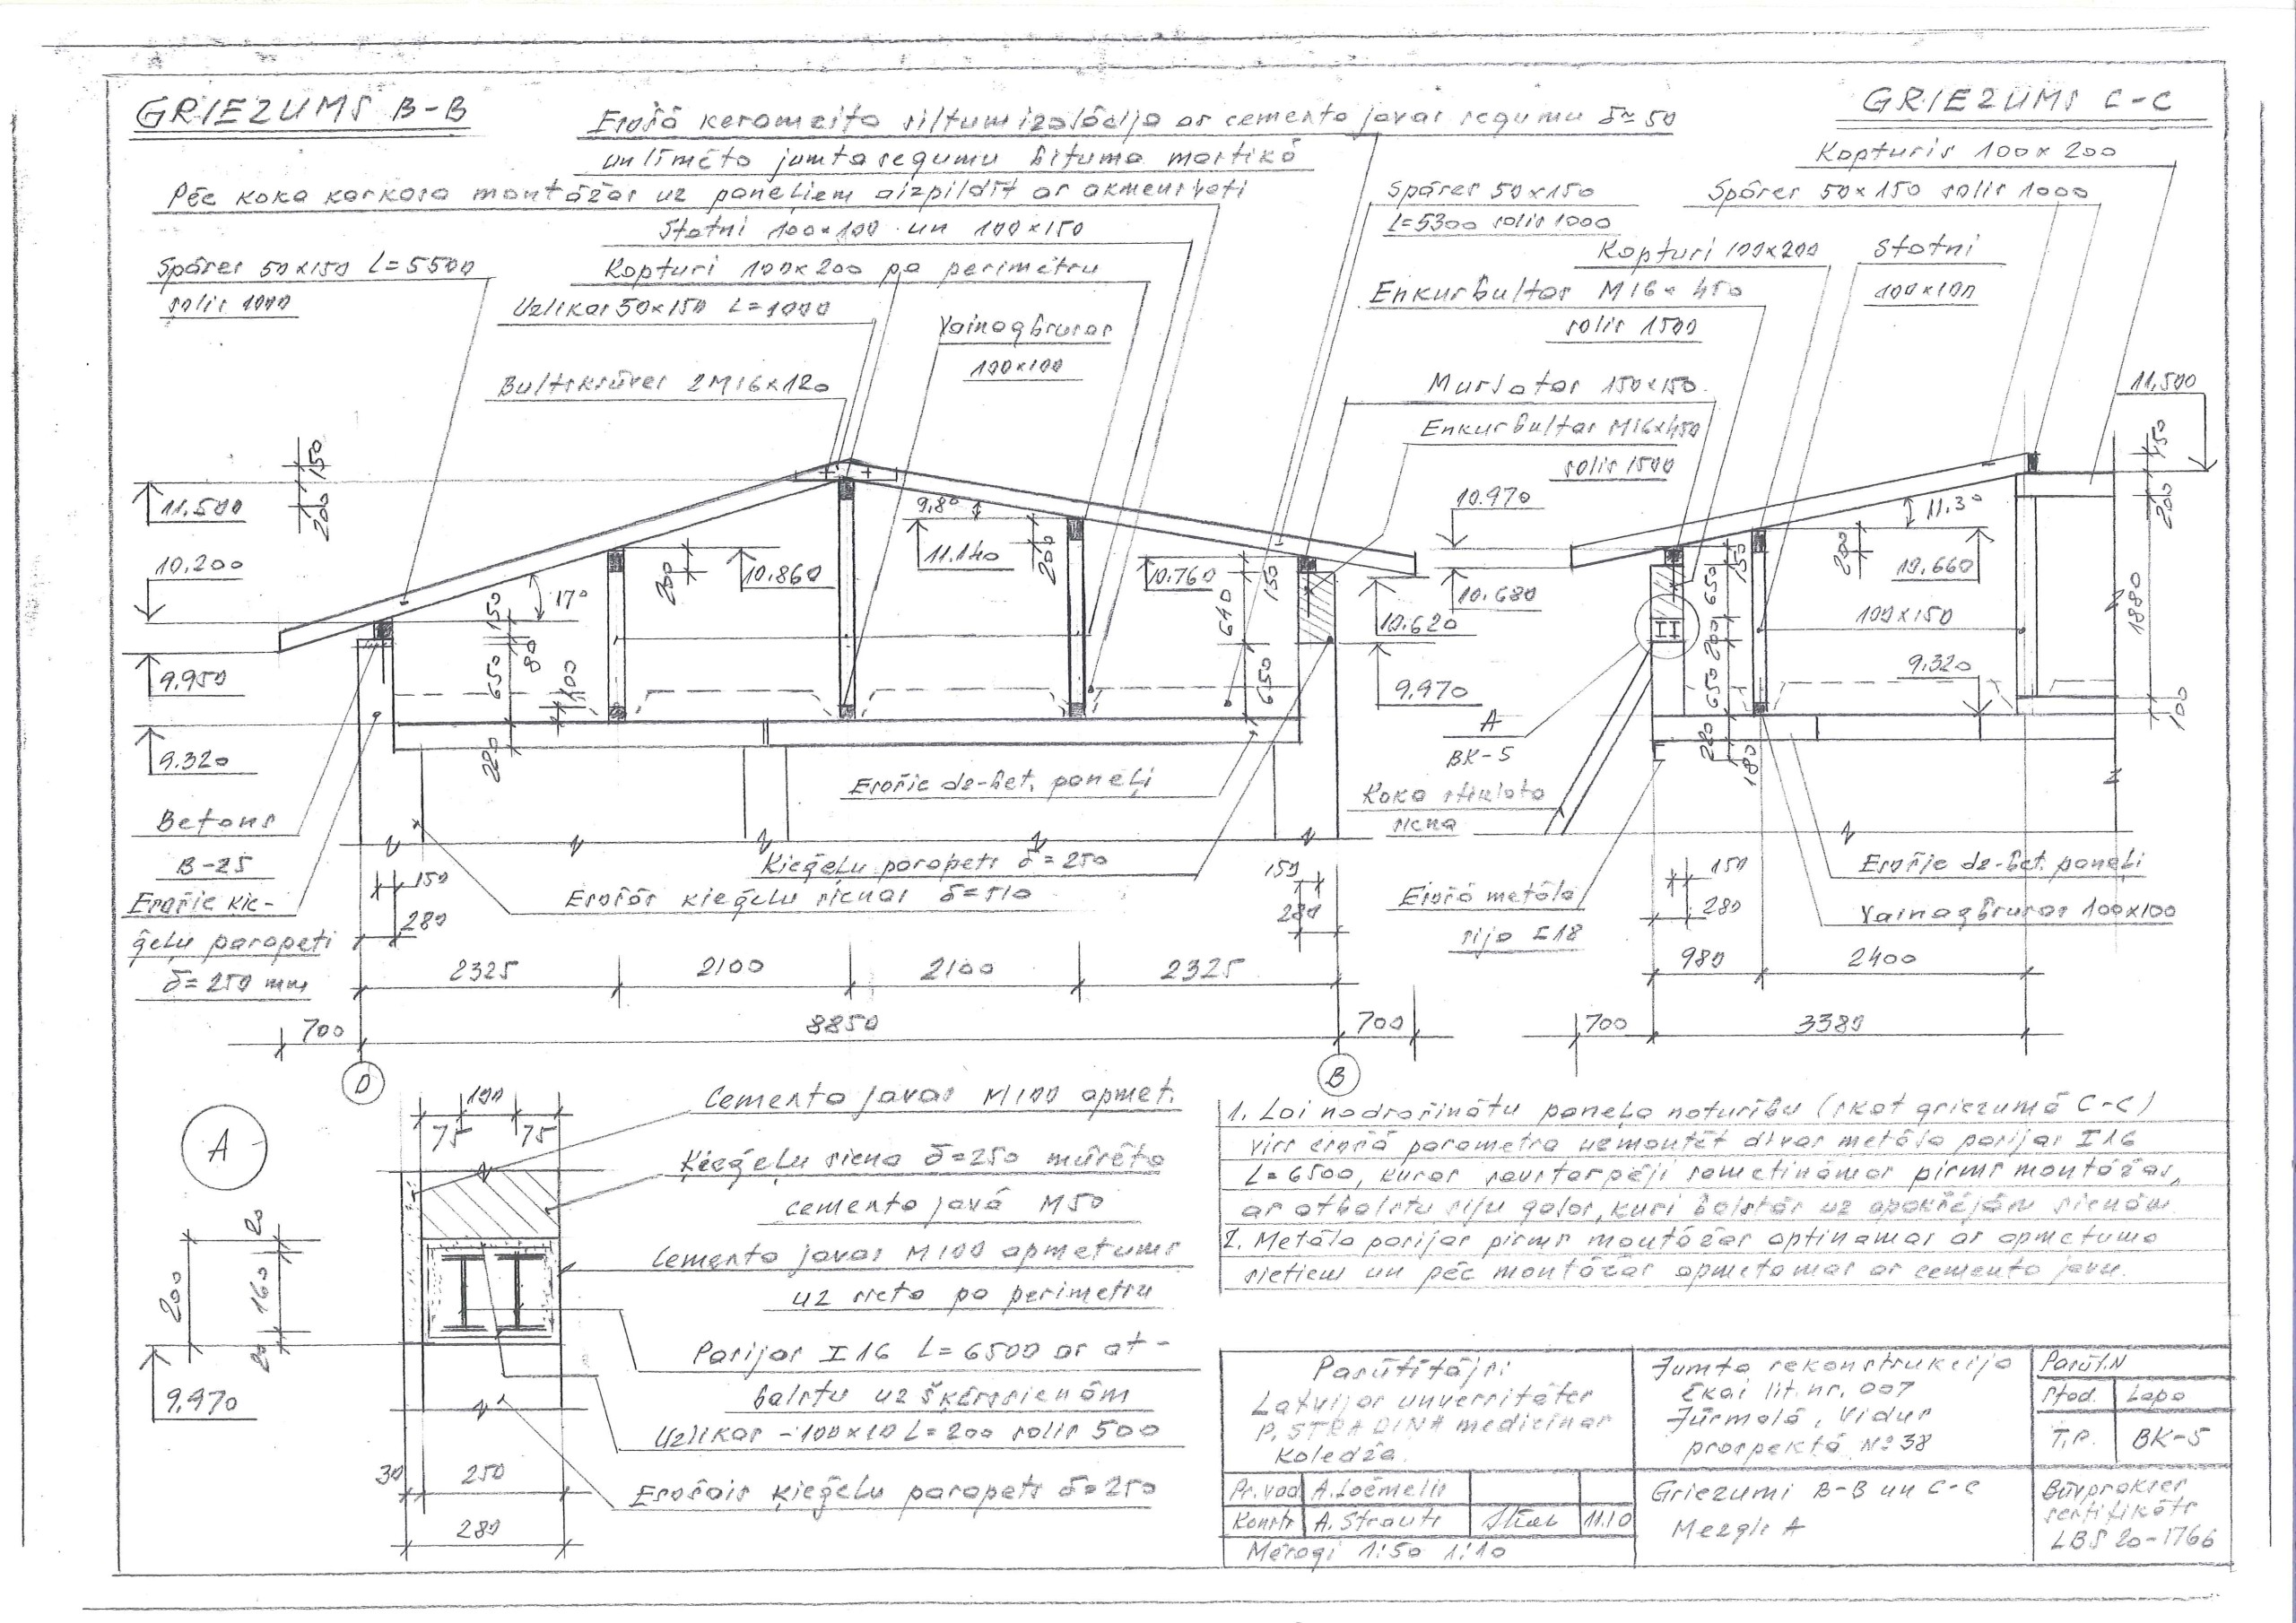 GRIEZUMS B-B
GRIEZUMS C-C
Esošā keramzīta siltumizolācija ar cementa javas segumu δ≈50
un līmēto jumta segumu bituma mastikā
Pēc koka karkasa montāžas uz paneļiem aizpildīt ar akmensvati
Statņi 100×100 un 100×150
Spāres 50×150 L=5500
solis 1000
Kopturi 100×200 pa perimetru
Uzlikas 50×150 L=1000
Vainagbrusas
100×100
Bultskrūves 2M16×120
Spāres 50×150
L=5300 solis 1000
Kopturis 100×200
Spāres 50×150 solis 1000
Kopturi 100×200
Statņi
100×100
Enkurbultas M16×450
solis 1500
Mūrlatas 150×150
Enkurbultas M16×450
solis 1500
11.500
10.200
9.950
9.320
150
200
17°
150
80
650
100
220
200
10.860
9,8°
11.140
200
10.760
150
610
650
10.620
9.970
10.970
10.680
11.500
150
200
11.3°
10.660
200
150
650
200
650
220
180
100×150
9.320
1880
100
A
BK-5
Koka slīpota
siena
Esošie dz-bet. paneļi
Betons
B-25
Esošie ķie-
ģeļu parapeti
δ=250 mm
Ķieģeļu parapets δ=250
Esošās ķieģeļu sienas δ=510
150
280
150
280
Esošā metāla
sija [18
150
280
Esošie dz-bet. paneļi
Vainagbrusas 100×100
2325
2100
2100
2325
700
8850
700
D
B
980
2400
700
3380
A
100
75
75
20
200
160
20
9.970
30
250
280
Cementa javas M100 apmet.
Ķieģeļu siena δ=250 mūrēta
cementa javā M50
Cementa javas M100 apmetums
uz sieta pa perimetru
Pasijas I16 L=6500 ar at-
balstu uz šķērssienām
Uzlikas -100×10 L=200 solis 500
Esošais ķieģeļu parapets δ=250
1. Lai nodrošinātu paneļa noturību (skat griezumā C-C)
virs esošā parametra uzmontēt divas metāla pasijas I16
L=6500, kuras savstarpēji sametināmas pirms montāžas,
ar atbalstu siju galos, kuri balstās uz apakšējām sienām
2. Metāla pasijas pirms montāžas aptinamas ar apmetuma
sietiem un pēc montāžas apmetamas ar cementa javu.
Pasūtītājs:
Latvijas unversitātes
P. STRADIŅA medicīnas
koledža.
Jumta rekonstrukcija
Ēkai lit. nr. 007
Jūrmalā, Vidus
prospektā № 38
Pasūt. N
Stad.
Lapa
T.P.
BK-5
Pr. vad
Konstr
A. Strauts
11.10
Mērogi 1:50 1:10
Griezumi B-B un C-C
Mezgls A
Būvprakses
sertifikāts
LBS 20-1766